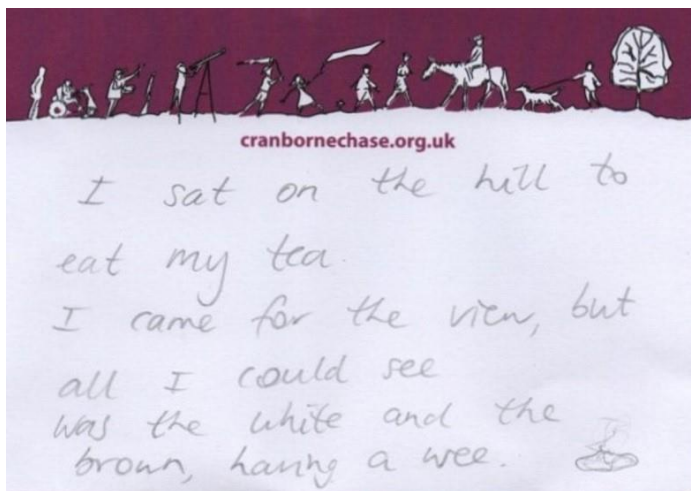 cranbornechase.org.uk
I sat on the hill to
eat my tea.
I came for the view, but
all I could see
was the white and the
brown, having a wee.